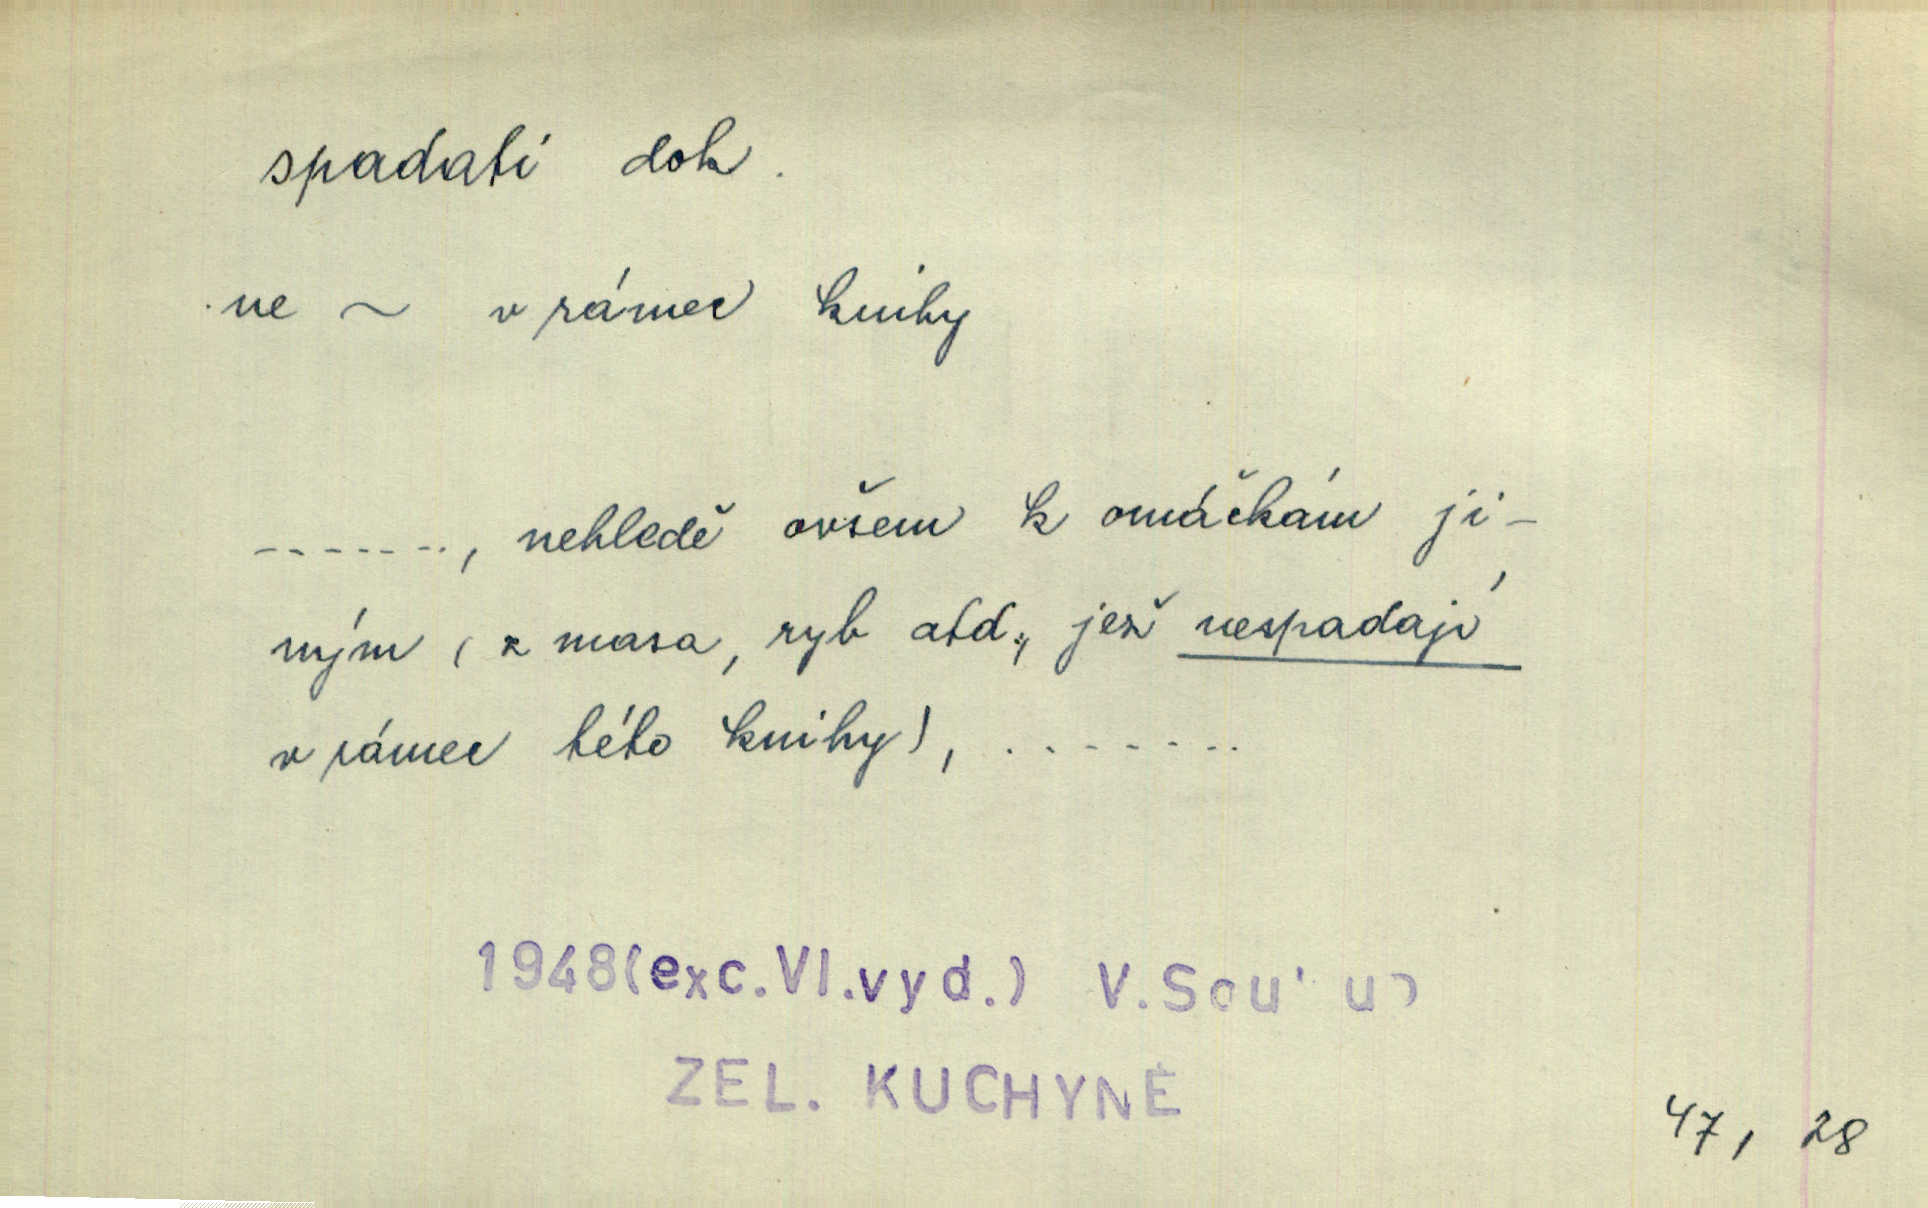 spadati dok.
ne ~ v rámec knihy
-------, nehledě ovšem k omáčkám ji-
ným (z masa, ryb atd., jež nespadají
v rámec této knihy), .-------
1948(exc.VI.vyd.) V.
ZEL. KUCHYNĚ
47, 28